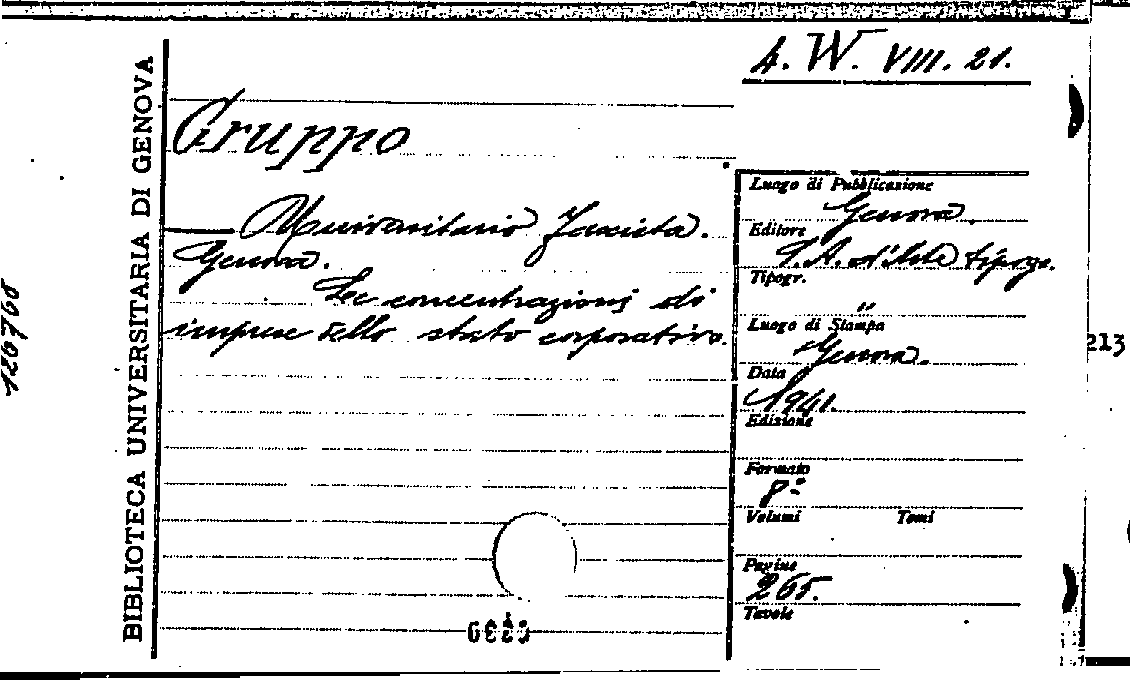 4. W. VIII. 21.
BIBLIOTECA UNIVERSITARIA DI GENOVA
126768
Gruppo
Universitario Fascista.
Genova.
Le concentrazioni di
imprese dello stato corporativo.
Luogo di Pubblicazione
Genova.
Editore
S. A. d'Arte tipogr.
Tipogr.
"
Luogo di Stampa
Genova.
Data
1941.
Edizione
Formato
8º
Volumi Tomi
Pagine
265.
Tavole
213